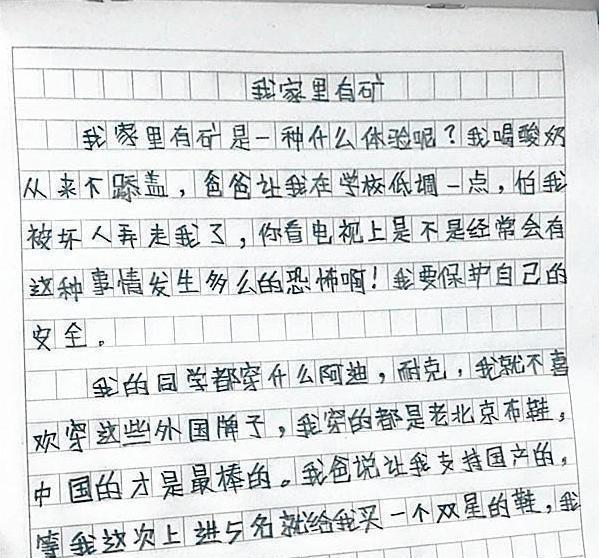 我家里有矿
我家里有矿是一种什么体验呢？我喝酸奶
从来不舔盖，爸爸让我在学校低调一点，怕我
被坏人弄走我了，你看电视上是不是经常会有
这种事情发生多么的恐怖啊！我要保护自己的
安全。
我的同学都穿什么阿迪，耐克，我就不喜
欢穿这些外国牌子，我穿的都是老北京布鞋，
中国的才是最棒的。我爸说让我支持国产的，
等我这次上进5名就给我买一个双星的鞋，我